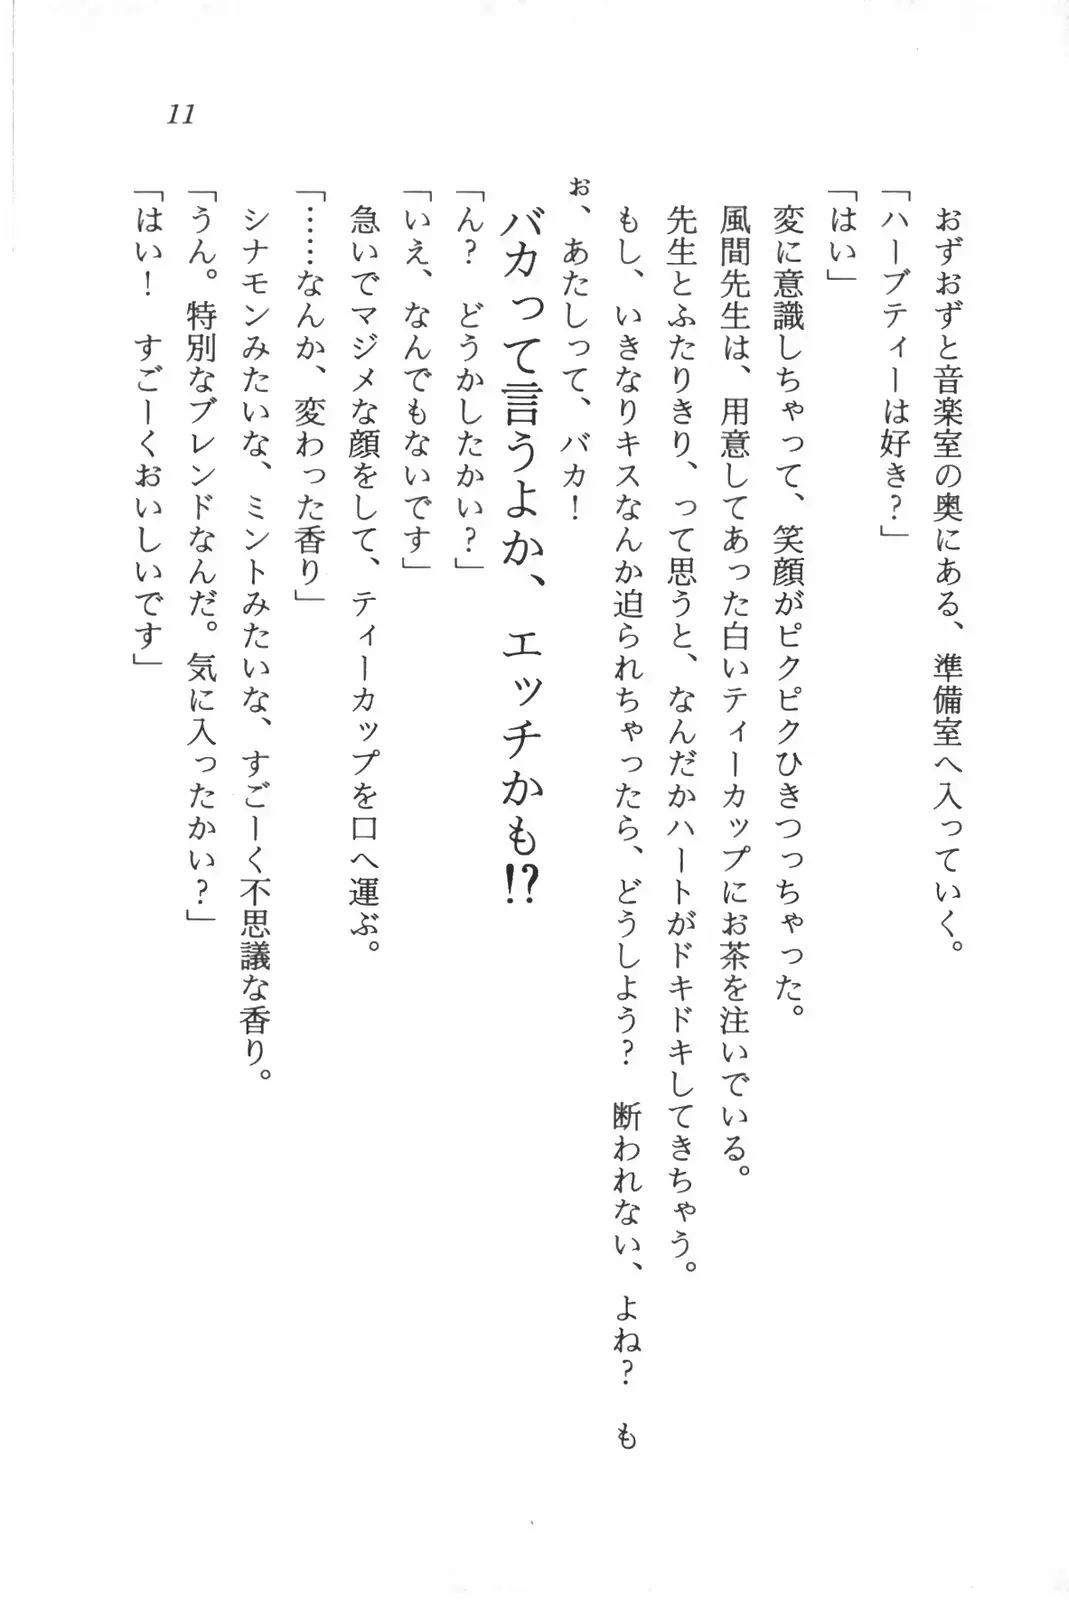 11
おずおずと音楽室の奥にある、準備室へ入っていく。
「ハーブティーは好き？」
「はい」
変に意識しちゃって、笑顔がピクピクひきつっちゃった。
風間先生は、用意してあった白いティーカップにお茶を注いでいる。
先生とふたりきり、って思うと、なんだかハートがドキドキしてきちゃう。
もし、いきなりキスなんか迫られちゃったら、どうしよう？　断われない、よね？　も
ぉ、あたしって、バカ！
バカって言うよか、エッチかも⁉
「ん？　どうかしたかい？」
「いえ、なんでもないです」
急いでマジメな顔をして、ティーカップを口へ運ぶ。
「……なんか、変わった香り」
シナモンみたいな、ミントみたいな、すごーく不思議な香り。
「うん。特別なブレンドなんだ。気に入ったかい？」
「はい！　すごーくおいしいです」